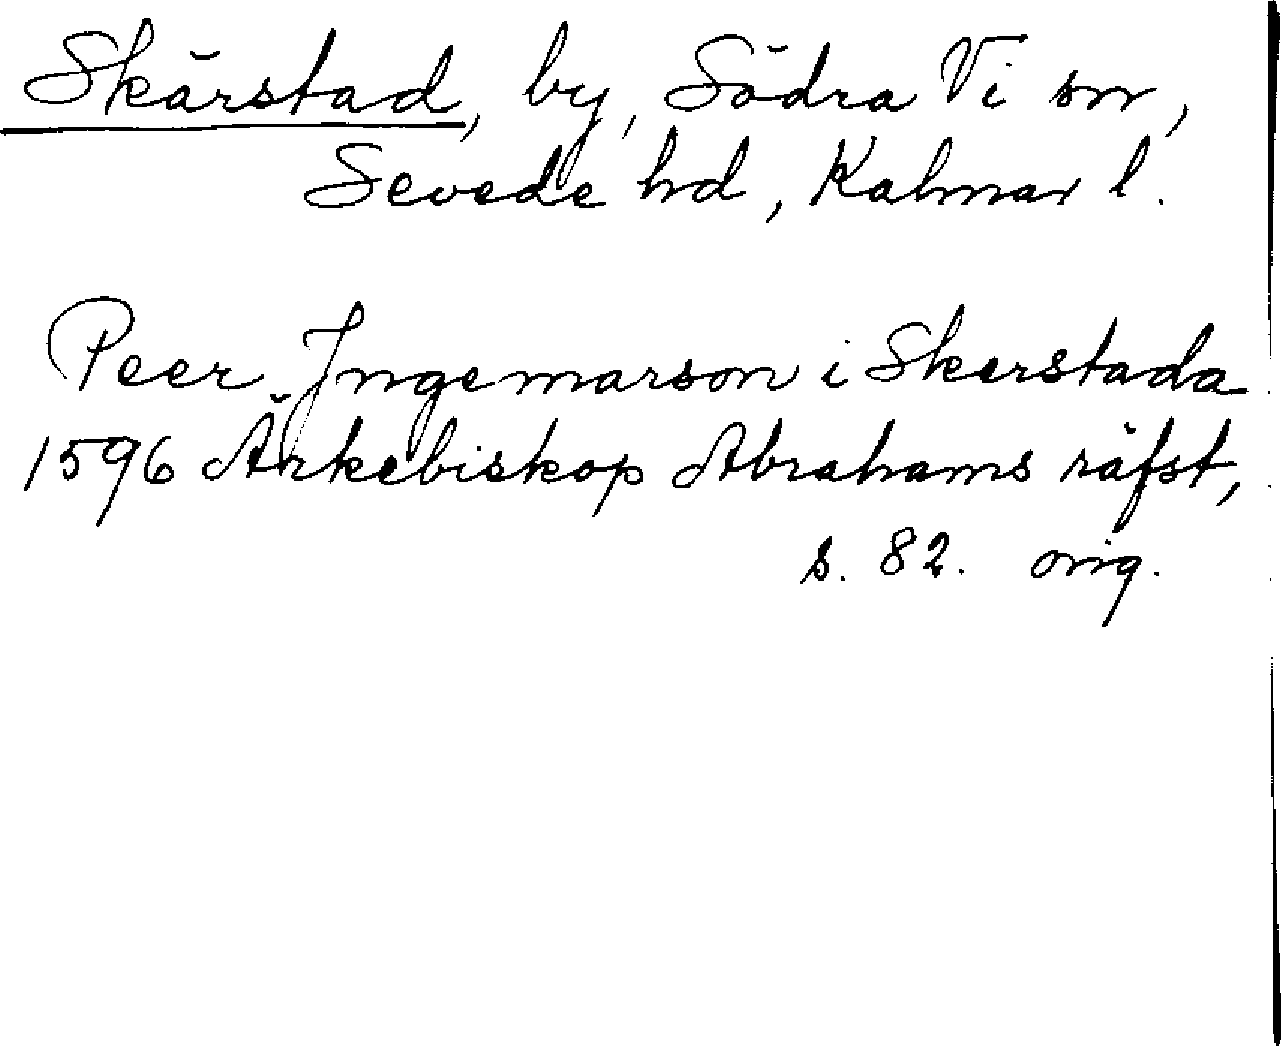 Skärstad, by, Södra Vi sn,
Sevede hd, Kalmar l.
Peer Ingemarson i Skerstada
1596 Ärkebiskop Abrahams räfst,
s. 82. orig.